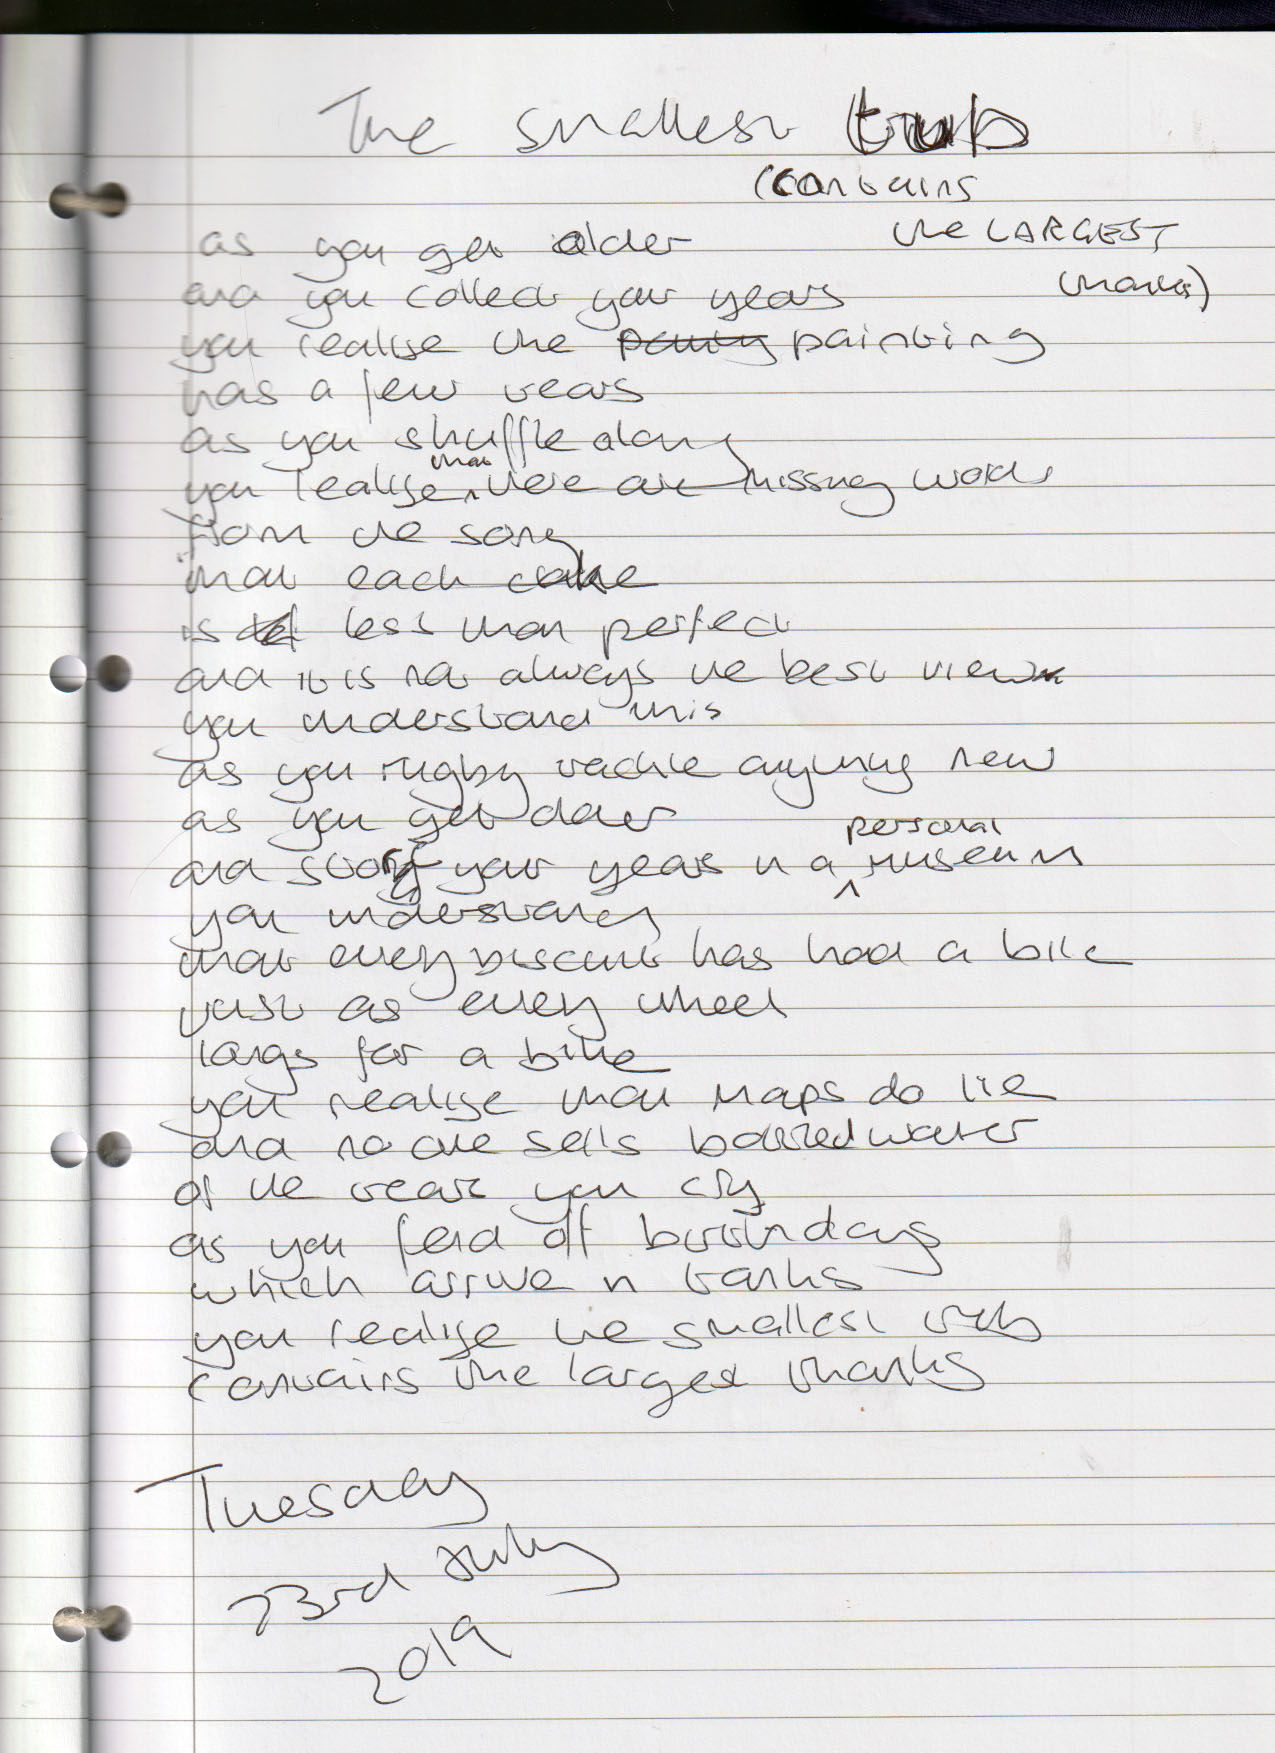 The smallest tub
(contains
the LARGEST
thanks)
as you get older
and you collect your years
you realise the painting
has a few tears
as you shuffle along
you realise that there are missing words
from the song
that each cake
is less than perfect
and it is not always the best view
you understand this
as you rugby tackle anything new
as you get older
and store your years in a personal museum
you understand
that every biscuit has had a bite
just as every wheel
longs for a bike
you realise that maps do lie
and no one sells bottled water
of the tears you cry
as you fend off birthdays
which arrive in tanks
you realise the smallest tub
contains the largest thanks
Tuesday
23rd July
2019